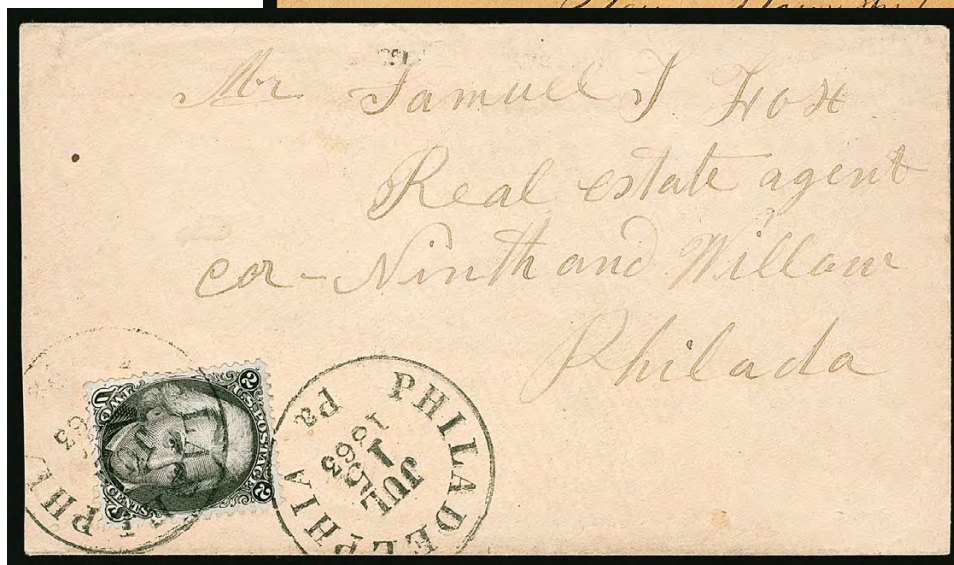 Mr Samuel T Fox
Real estate agent
cor - Ninth and Willow
Philada
PHILADELPHIA Pa
JUL
1
1863
U 2
2